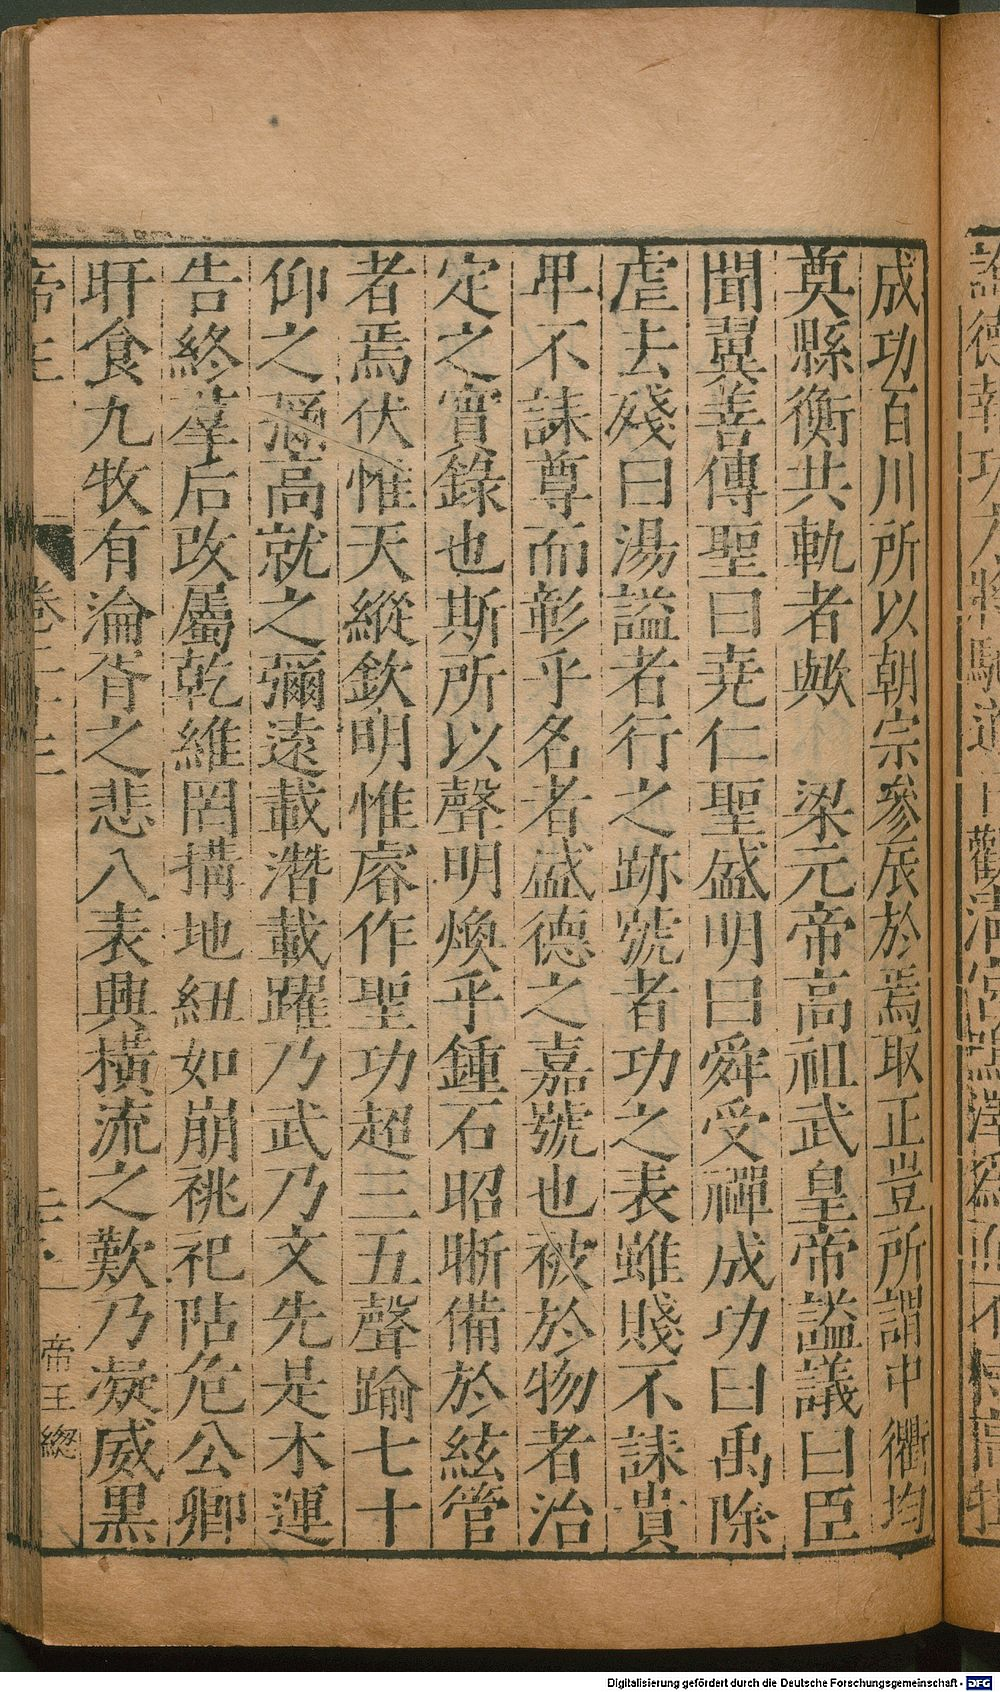 成功百川所以朝宗參辰於焉取正豈所謂中衢均
奠縣衡共軌者歟　梁元帝高祖武皇帝謚議曰臣
聞翼善傳聖曰堯仁聖盛明曰舜受禪成功曰禹除
虐去殘曰湯謚者行之跡號者功之表雖賤不誄貴
卑不誄尊而彰乎名者盛德之嘉號也被於物者治
定之實錄也斯所以聲明煥乎鍾石昭晣備於絃管
者焉伏惟天縱欽明惟睿作聖功超三五聲踰七十
仰之彌高就之彌遠載潛載躍乃武乃文先是木運
告終羣后改屬乾維罔搆地紐如崩祧祀阽危公卿
旰食九牧有淪胥之悲八表興橫流之歎乃凝威黑
帝王
卷
帝王總
Digitalisierung gefördert durch die Deutsche Forschungsgemeinschaft - DFG